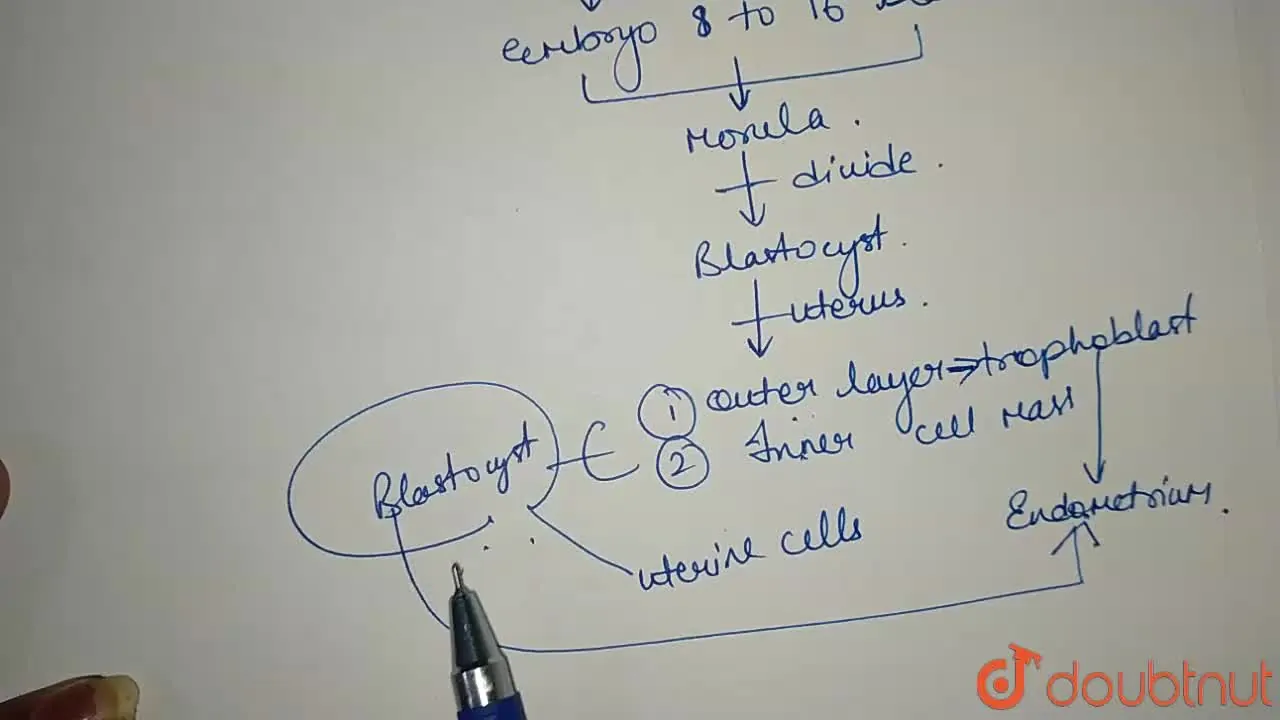 Embryo 8 to 16
Morula.
divide.
Blastocyst.
uterus.
① outer layer → trophoblast
② Inner cell mass
Blastocyst
Endometrium.
uterine cells
doubtnut